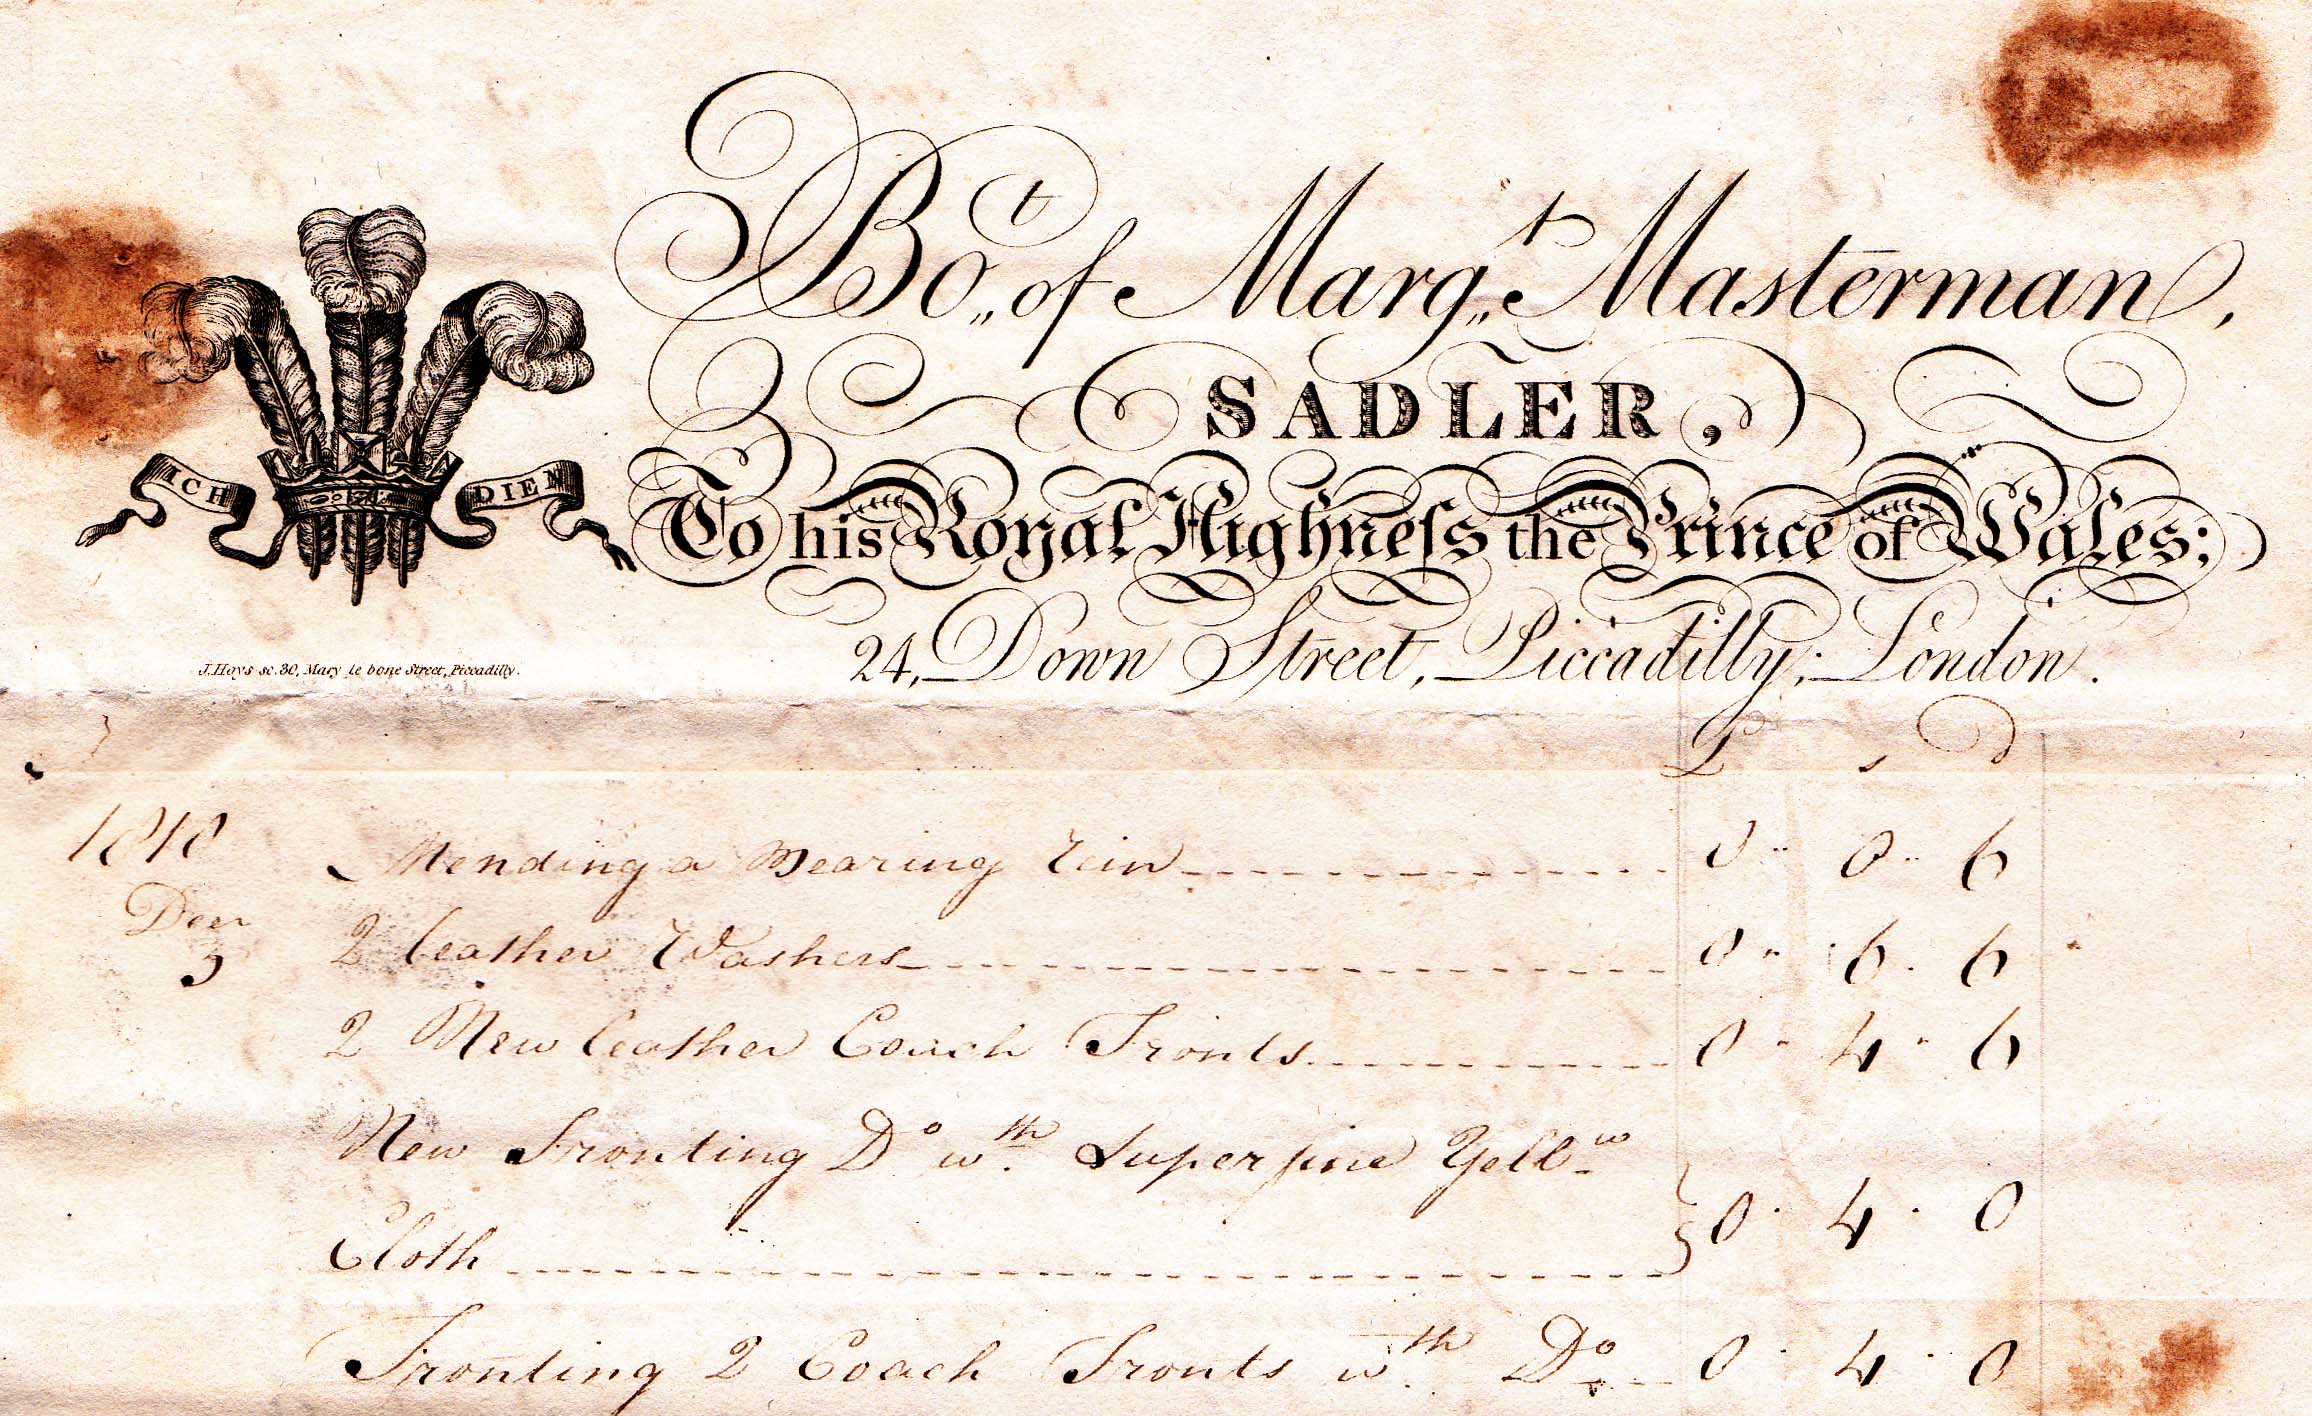 Bo,,ᵗ of Marg,,ᵗ Masterman,
SADLER,
ICH DIEN
To his Royal Highneſs the Prince of Wales;
24, Down Street, Piccadilly; London.
J. Hays sc. 30, Mary le bone Street, Piccadilly.
£ s D
1818 Mending a Bearing rein 0 0 6
Decr 3 2 leather Washers 0 6 6
2 New leather Coach Fronts 0 4 6
New Fronting Dº wᵗʰ Superfine Yellʷ
Cloth 0 4 0
Fronting 2 Coach Fronts wᵗʰ Dº 0 4 0